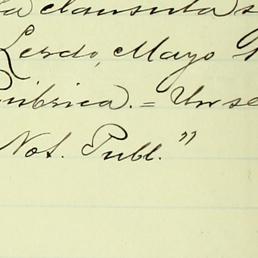 la clausula s
Lerdo, Mayo
úbrica). = Un se
Not. Publ."